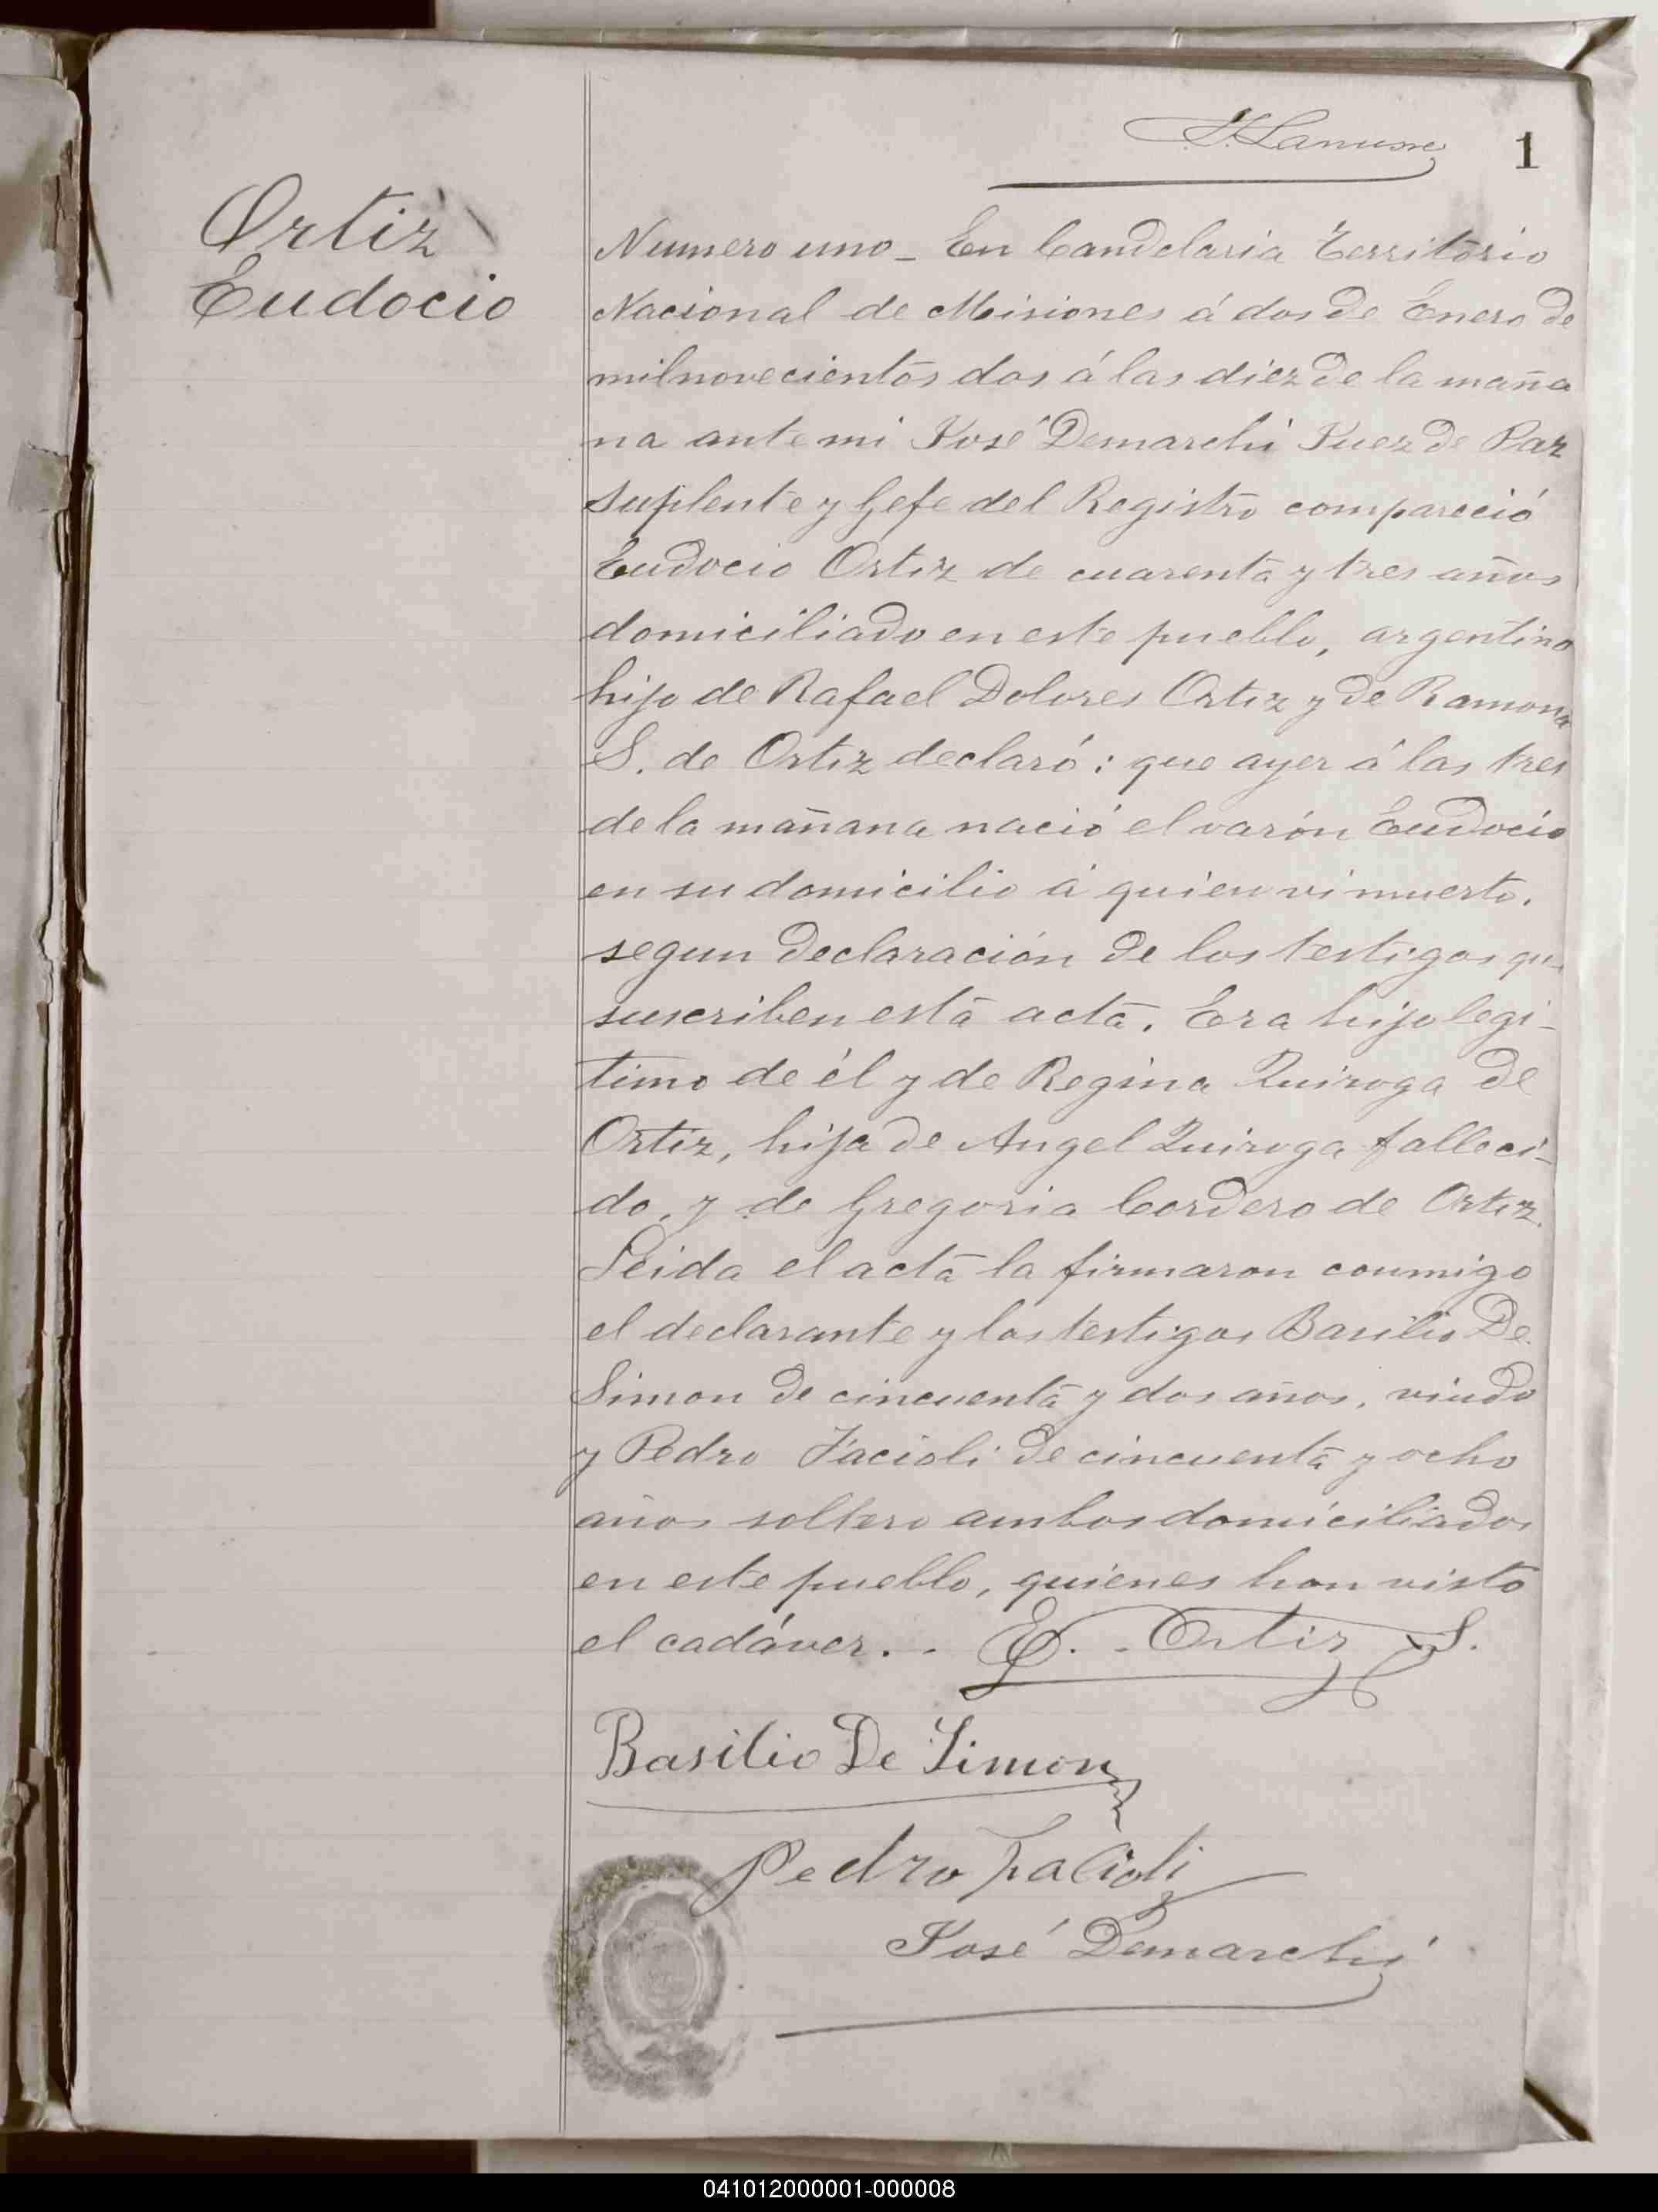 J. J. Lanusse
1
Ortiz
Eudocio
Numero uno_ En Candelaria Territorio
Nacional de Misiones á dos de Enero de
milnovecientos dos á las diez de la maña
na ante mi José Demarchi Juez de Paz
suplente y Gefe del Registro compareció
Eudocio Ortiz de cuarenta y tres años
domiciliado en este pueblo, argentino
hijo de Rafael Dolores Ortiz y de Ramona
S. de Ortiz declaró: que ayer á las tres
de la mañana nació el varón Eudocio
en su domicilio á quien vi muerto.
segun declaración de los testigos que
suscriben esta acta. Era hijo legi-
timo de él y de Regina Quiroga de
Ortiz, hija de Angel Quiroga falleci-
do, y de Gregoria Cordero de Ortiz.
Leida el acta la firmaron conmigo
el declarante y los testigos Basilio De
Simon de cincuenta y dos años, viudo
y Pedro Facioli de cincuenta y ocho
años soltero ambos domiciliados
en este pueblo, quienes han visto
el cadáver. . E. Ortiz S.
Basilio De Simon
Pedro Facioli
José Demarchi
041012000001-000008